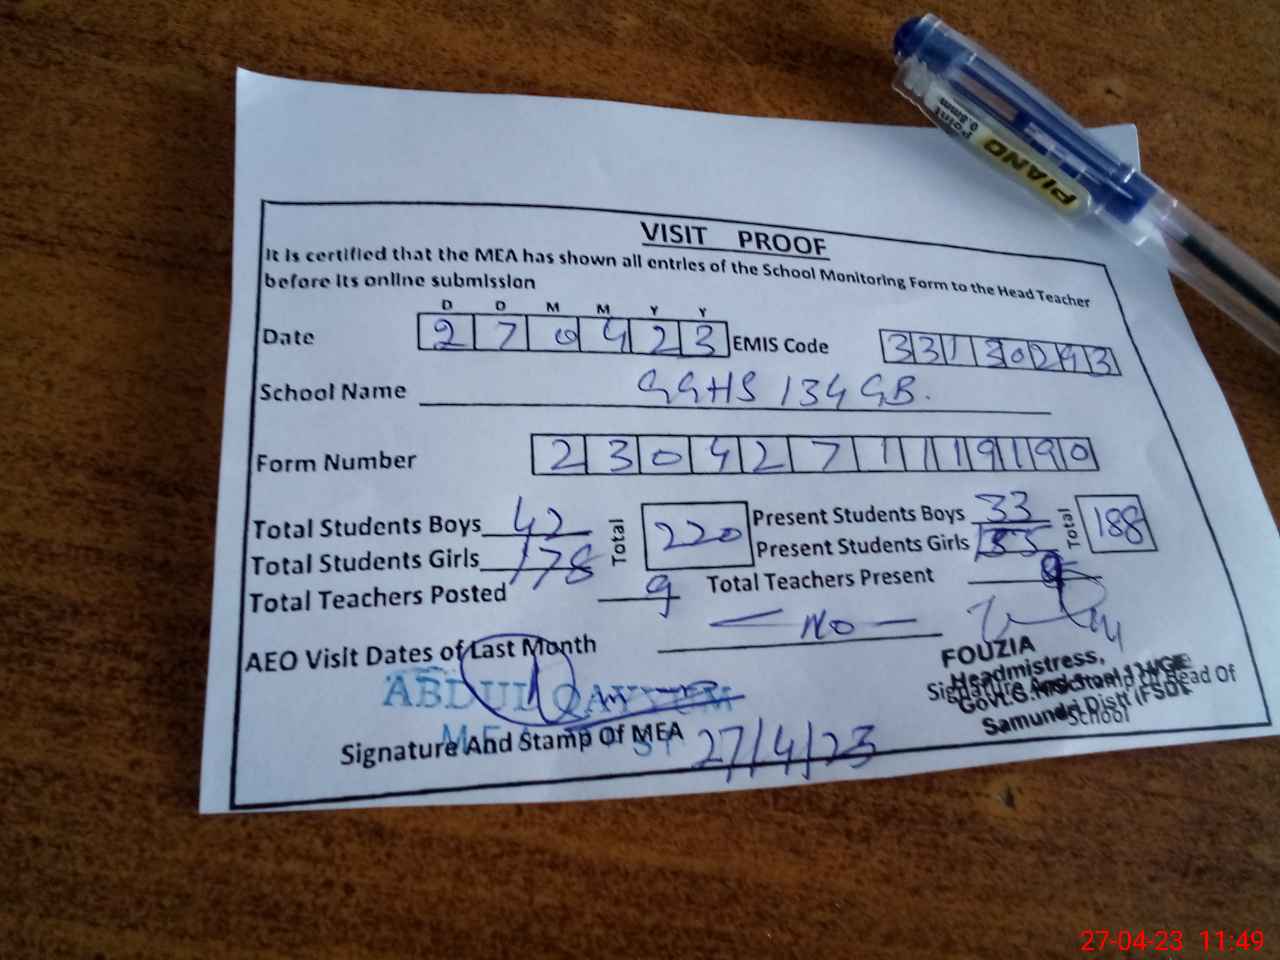 PIANO
Point
0.8mm
VISIT PROOF
It is certified that the MEA has shown all entries of the School Monitoring Form to the Head Teacher
before its online submission
D D M M Y Y
Date 2 7 0 4 2 3 EMIS Code 3 3 1 3 0 2 4 3
School Name GGHS 134 GB.
Form Number 2 3 0 4 2 7 1 1 1 9 1 9 0
Total Students Boys 42 Total 220 Present Students Boys 33 Total 188
Total Students Girls 178 Present Students Girls 155
Total Teachers Posted 9 Total Teachers Present 9
AEO Visit Dates of Last Month No
ABDUL QAYYUM
Signature And Stamp Of MEA 27/4/23
FOUZIA
Headmistress,
Samundri Distt (FSD)
School
27-04-23 11:49